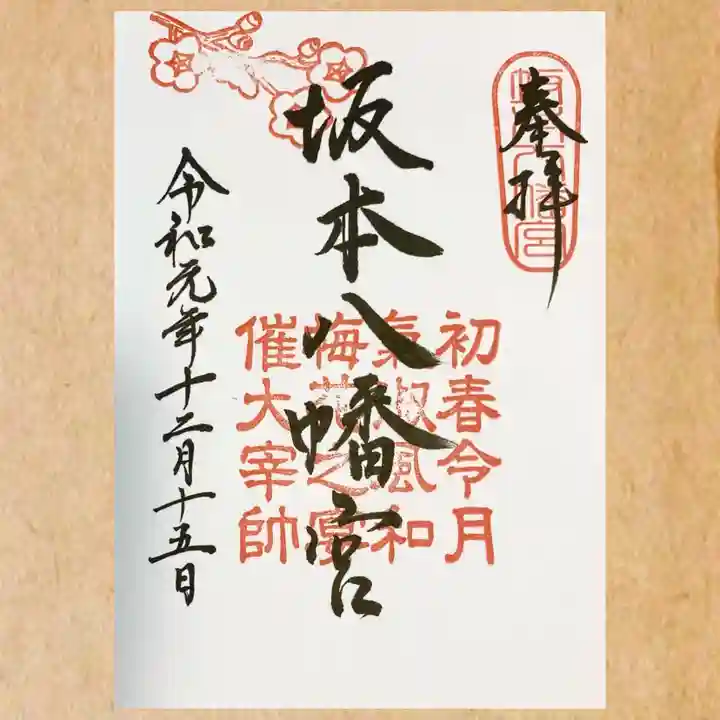 奉拝
坂本八幡宮
初春令月
氣淑風和
梅花之宴
催大宰帥
令和元年十二月十五日